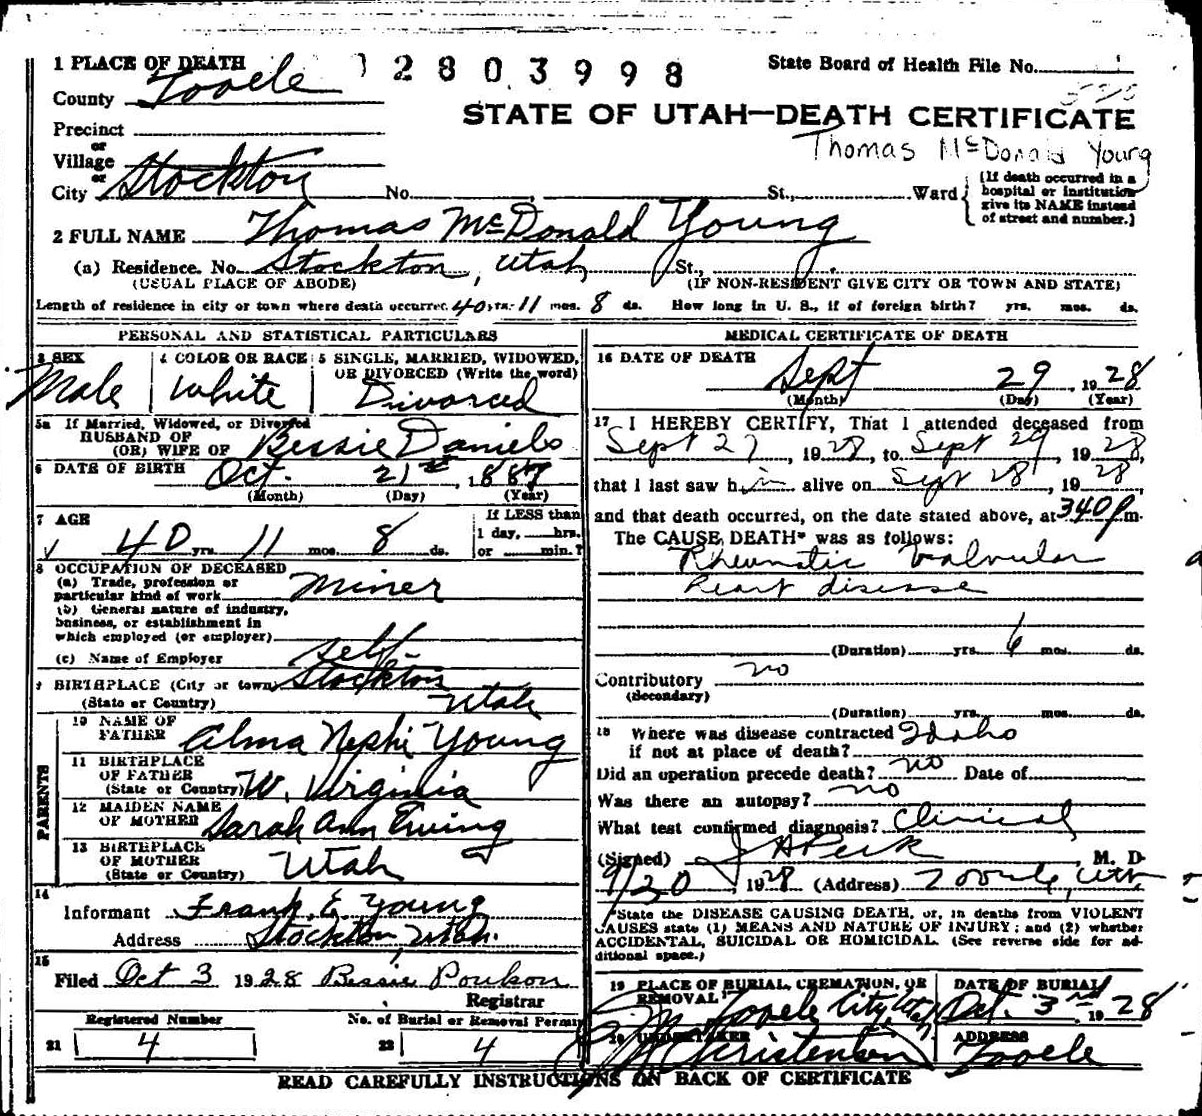 1 PLACE OF DEATH
12803998
State Board of Health File No.
County Tooele
STATE OF UTAH—DEATH CERTIFICATE
Precinct
Thomas McDonald Young
or
Village
or
City Stockton No. St., Ward
(If death occurred in a hospital or institution give its NAME instead of street and number.)
2 FULL NAME Thomas McDonald Young
(a) Residence. No. Stockton, Utah St.,
(USUAL PLACE OF ABODE) (IF NON-RESIDENT GIVE CITY OR TOWN AND STATE)
Length of residence in city or town where death occurred 40 yrs. 11 mos. 8 ds. How long in U. S., if of foreign birth? yrs. mos. ds.
PERSONAL AND STATISTICAL PARTICULARS
3 SEX
Male
4 COLOR OR RACE
White
5 SINGLE, MARRIED, WIDOWED, OR DIVORCED (Write the word)
Divorced
5a If Married, Widowed, or Divorced
HUSBAND OF
(OR) WIFE OF Bessie Daniels
6 DATE OF BIRTH Oct. 21st, 1887
(Month) (Day) (Year)
7 AGE
40 yrs. 11 mos. 8 ds.
If LESS than
1 day, hrs.
or min.?
8 OCCUPATION OF DECEASED
(a) Trade, profession or
particular kind of work Miner
(b) General nature of industry,
business, or establishment in
which employed (or employer)
(c) Name of Employer self
9 BIRTHPLACE (City or town) Stockton
(State or Country) Utah
PARENTS
10 NAME OF
FATHER Alma Nephi Young
11 BIRTHPLACE
OF FATHER
(State or Country) W. Virginia
12 MAIDEN NAME
OF MOTHER Sarah Ann Ewing
13 BIRTHPLACE
OF MOTHER
(State or Country) Utah
14
Informant Frank E. Young
Address Stockton, Utah.
15
Filed Oct 3 1928 Bessie Poulson
Registrar
Registered Number
21 4
No. of Burial or Removal Permit
22 4
MEDICAL CERTIFICATE OF DEATH
16 DATE OF DEATH
Sept 29, 1928
(Month) (Day) (Year)
17 I HEREBY CERTIFY, That I attended deceased from
Sept 27, 1928, to Sept 29, 1928,
that I last saw him alive on Sept 28, 1928,
and that death occurred, on the date stated above, at 340 p m.
The CAUSE DEATH* was as follows:
Rheumatic Valvular
heart disease
(Duration) yrs. 6 mos. ds.
Contributory no
(Secondary)
(Duration) yrs. mos. ds.
18 Where was disease contracted Idaho
if not at place of death?
Did an operation precede death? no Date of
Was there an autopsy? no
What test confirmed diagnosis? Clinical
(Signed) J H Peck, M. D.
9/30, 1928 (Address) Tooele, Utah
*State the DISEASE CAUSING DEATH, or, in deaths from VIOLENT
CAUSES state (1) MEANS AND NATURE OF INJURY; and (2) whether
ACCIDENTAL, SUICIDAL OR HOMICIDAL. (See reverse side for ad-
ditional space.)
19 PLACE OF BURIAL, CREMATION, OR
REMOVAL Tooele City, Utah
DATE OF BURIAL
Oct. 3rd 1928
20 UNDERTAKER
Christensen
ADDRESS
Tooele
READ CAREFULLY INSTRUCTIONS ON BACK OF CERTIFICATE